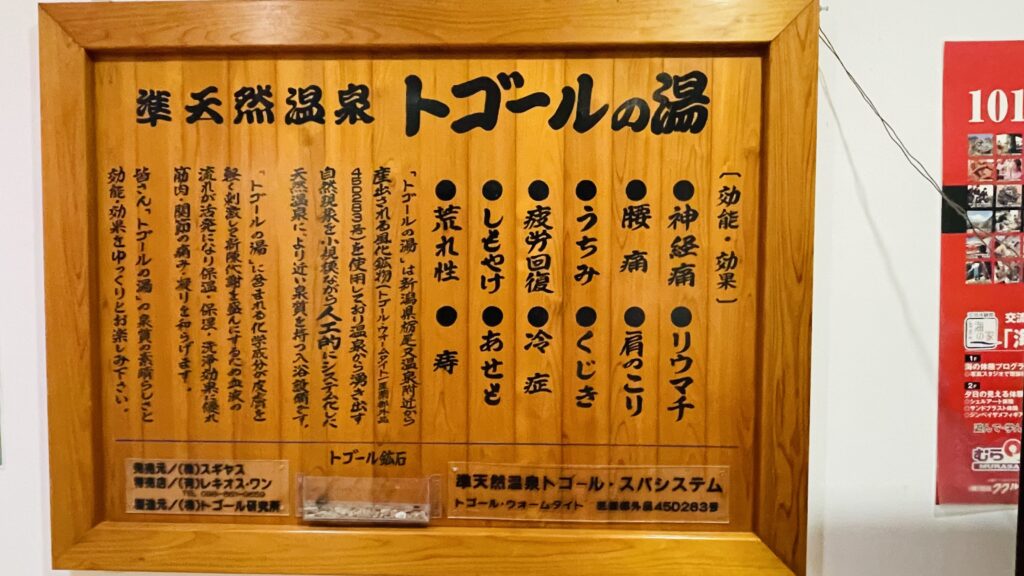 準天然温泉 トゴールの湯
〔効能・効果〕
●神経痛 ●リウマチ
●腰痛 ●肩のこり
●うちみ ●くじき
●疲労回復 ●冷症
●しもやけ ●あせも
●荒れ性 ●痔
「トゴールの湯」は新潟県栃尾又温泉附近から
産出される風化鉱物(トゴール・ウォームタイト・医薬部外品
45D283号)を使用しており温泉から湧き出す
自然現象を小規模ながら人工的にシステム化した
天然温泉に、より近い泉質を持つ入浴設備です。
「トゴールの湯」に含まれる化学成分が皮膚を
軽く刺激し新陳代謝を盛んにするため血液の
流れが活発になり保温・保湿・洗浄効果に優れ
筋肉・関節の痛み・凝りを和らげます。
皆さん、トゴールの湯"の泉質の素晴らしさと
効能・効果をゆっくりとお楽しみ下さい。
トゴール鉱石
発売元/(株)スギヤス
特売店/(有)レキオス・ワン
製造元/(株)トゴール研究所
準天然温泉トゴール・スパシステム
トゴール・ウォームタイト 医薬部外品45D283号
101
交流
「海
1F
海の体験プログラ
2F
夕日の見える体験
シェルアート体験
サンドブラスト体験
遊んで・学ん
むら
MURASA